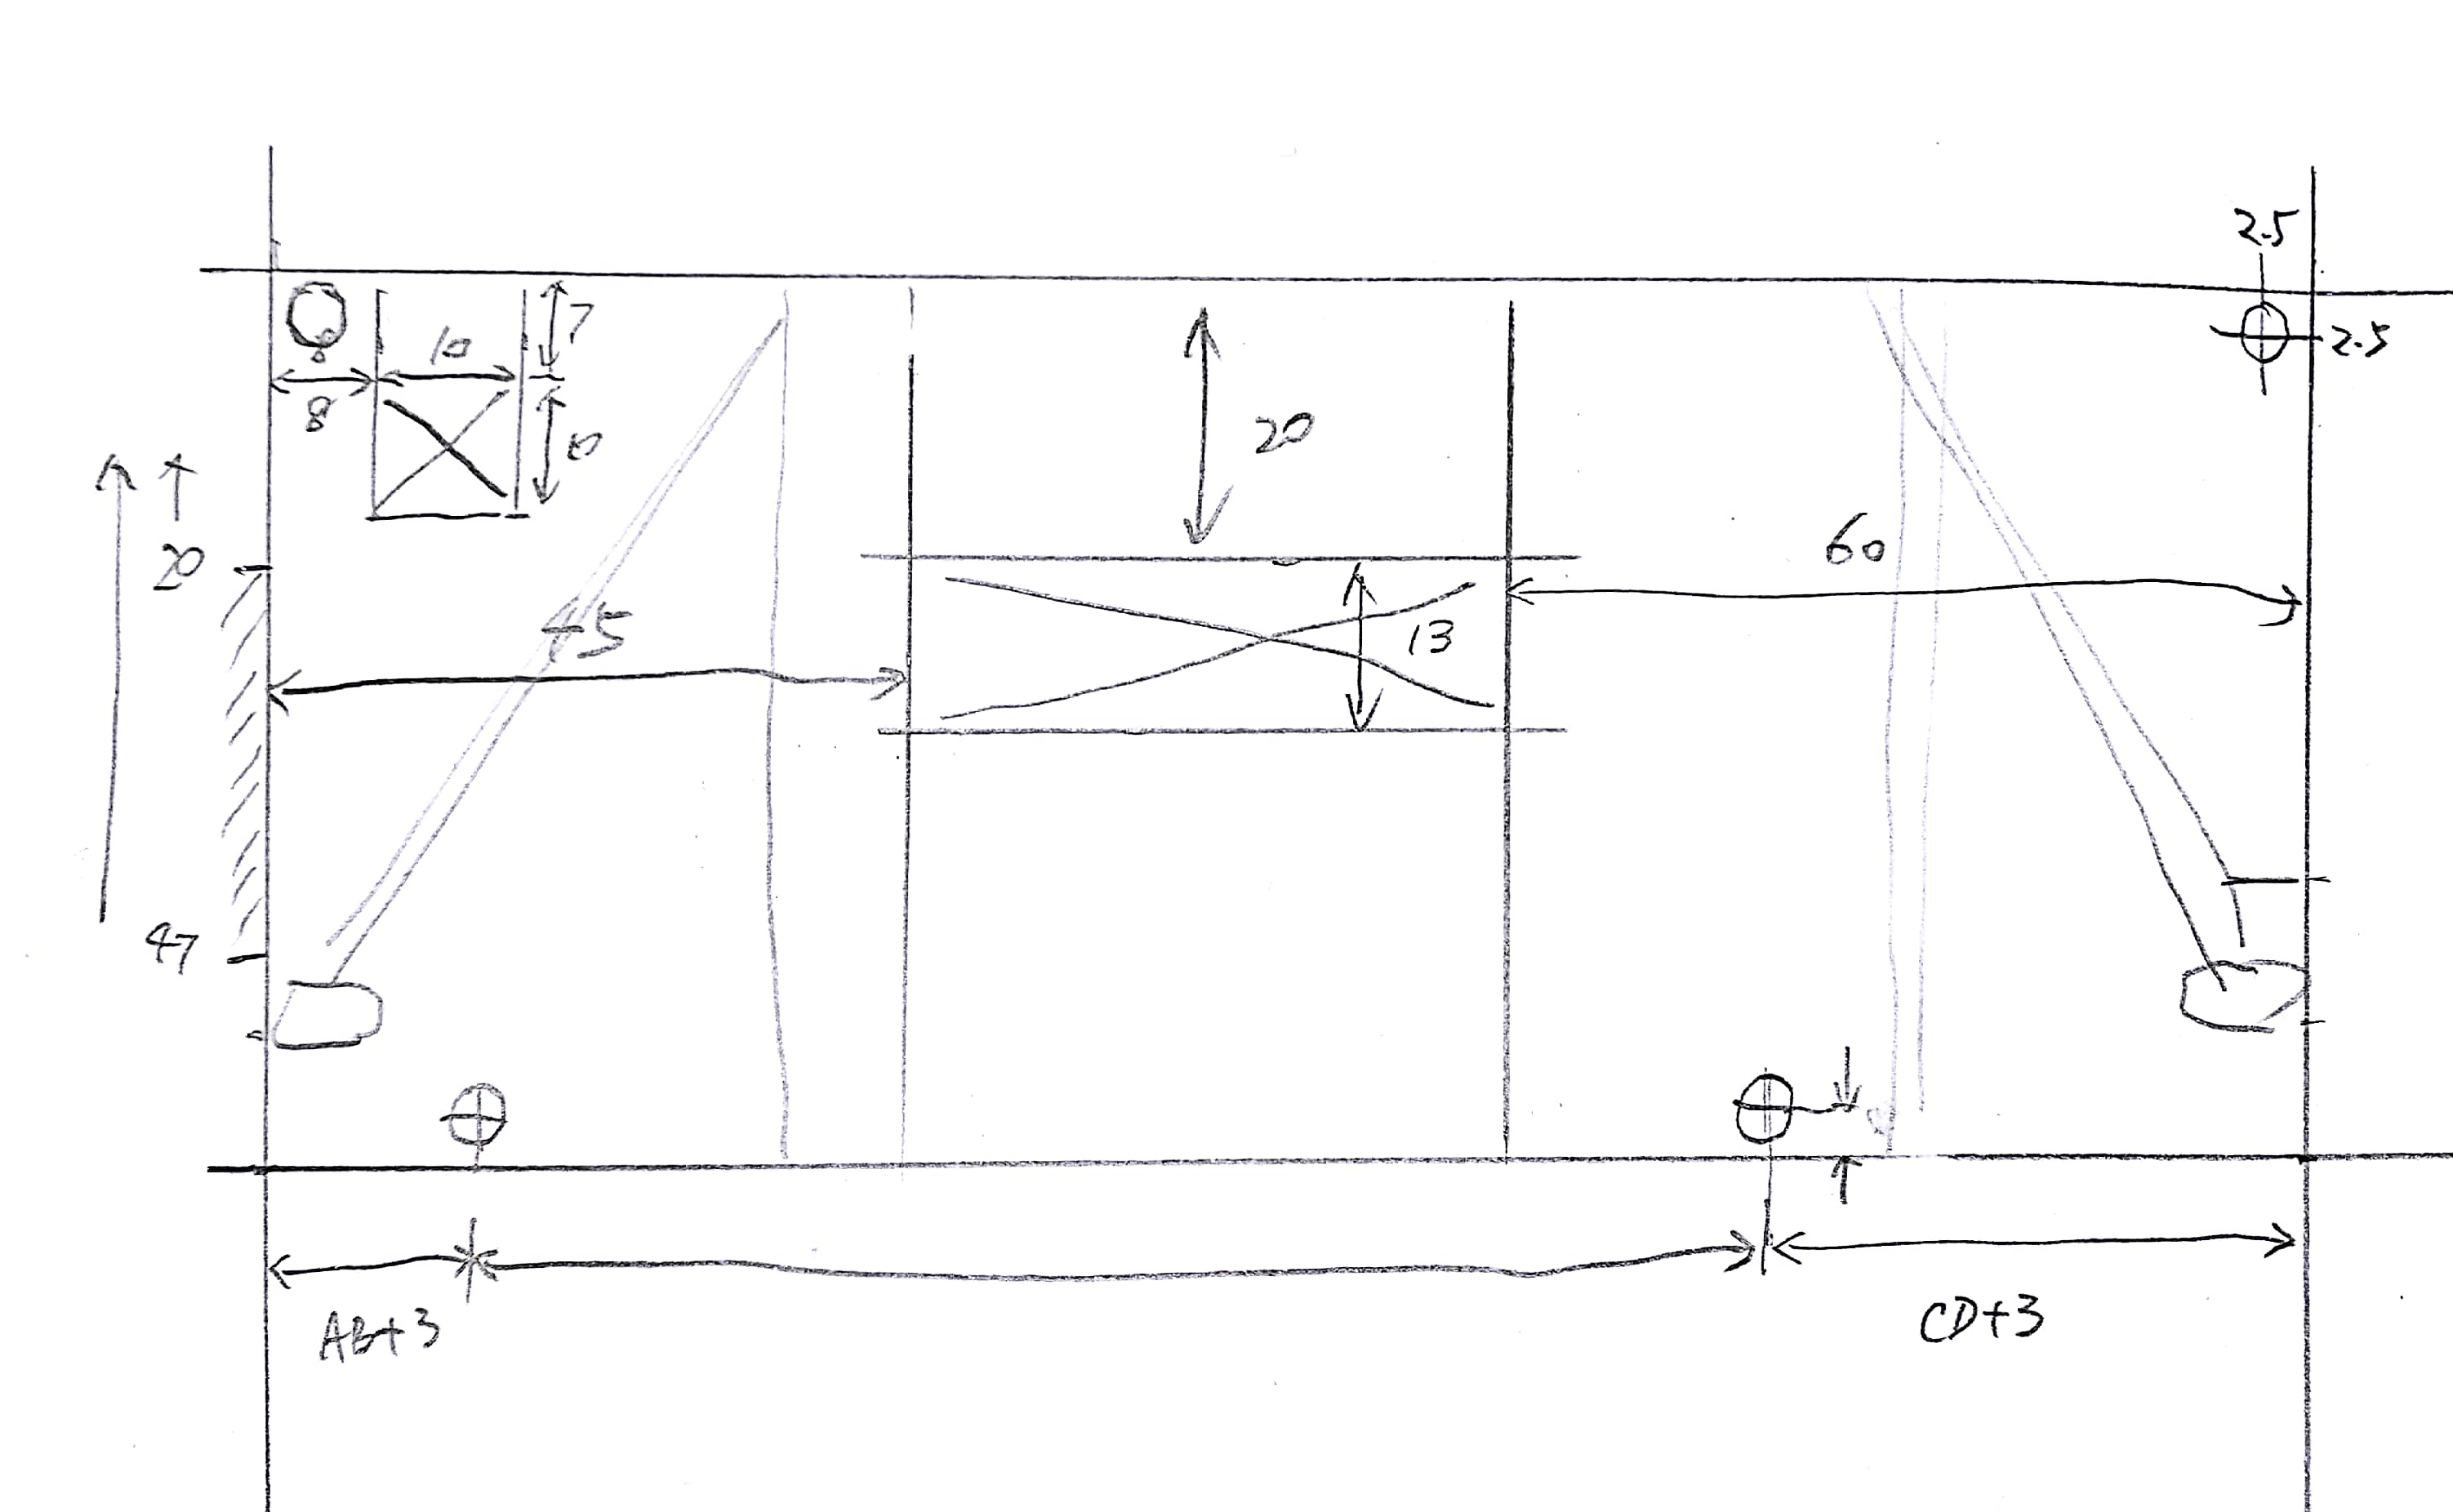 2.5
7
10
2.5
8
10
20
20
60
45
13
47
AB+3
CD+3